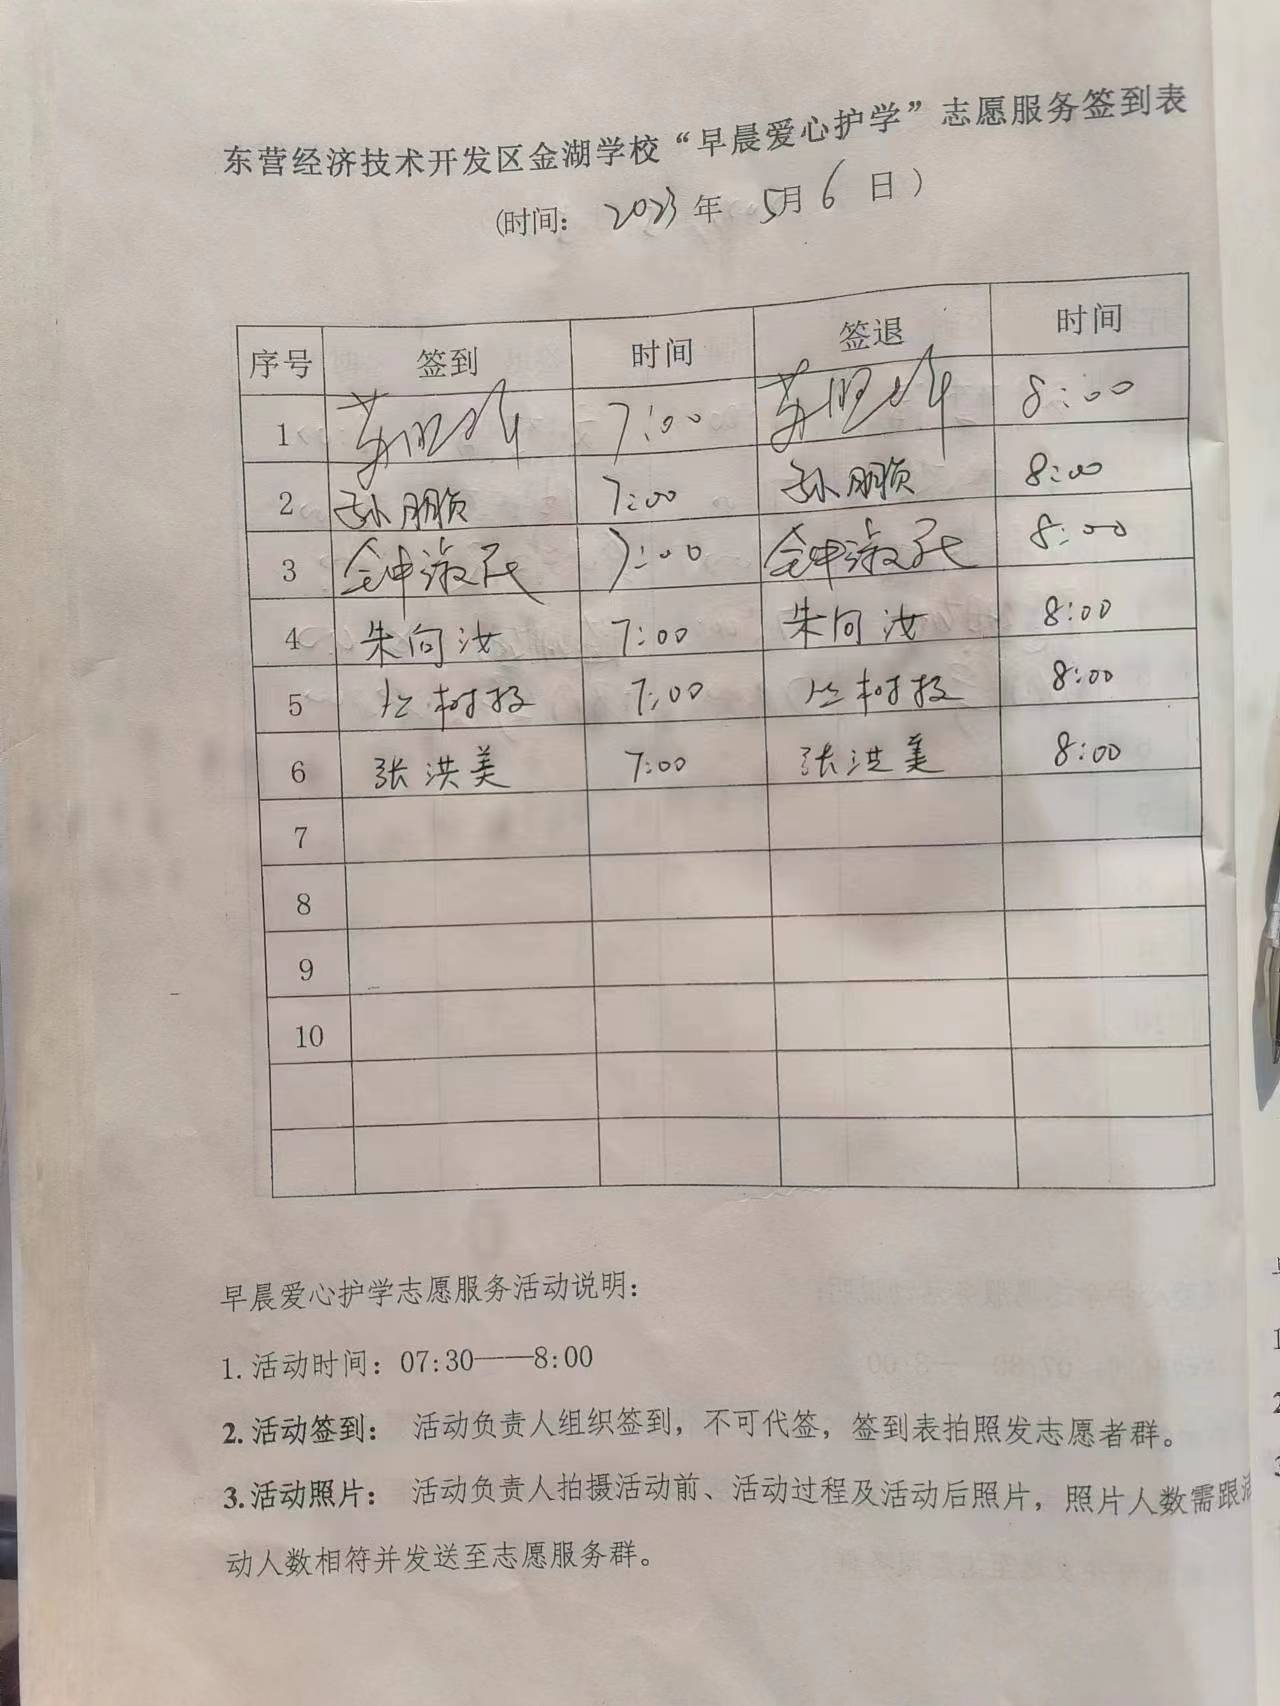 东营经济技术开发区金湖学校“早晨爱心护学”志愿服务签到表
(时间: 2023年 5月6日)
序号 签到 时间 签退 时间
1 7:00 8:00
2 孙鹏颃 7:00 孙鹏颃 8:00
3 钟淑民 7:00 钟淑民 8:00
4 朱向汝 7:00 朱向汝 8:00
5 7:00 8:00
6 张洪美 7:00 张洪美 8:00
7
8
9
10
早晨爱心护学志愿服务活动说明:
1.活动时间: 07:30——8:00
2.活动签到: 活动负责人组织签到，不可代签，签到表拍照发志愿者群。
3.活动照片: 活动负责人拍摄活动前、活动过程及活动后照片，照片人数需跟活
动人数相符并发送至志愿服务群。